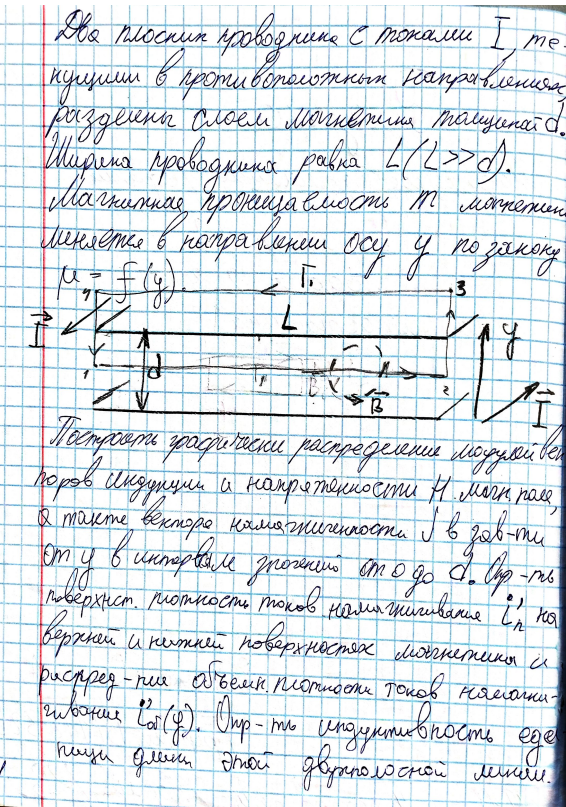 Два плоских проводника с токами I, те-
кущими в противоположных направлениях,
разделены слоем магнетика толщиной d.
Ширина проводника равна L (L>>d).
Магнитная проницаемость m магнетика
меняется в направлении осу y по закону
μ = f(y).
4 Г₁ 3
I L y
1 d 2
B B I
Построить графически распределение модулей век
торов индукции и напряженности H магн. поля,
а также вектора намагниченности J в зав-ти
от y в интервале значений от 0 до d. Опр-ть
поверхност. плотность токов намагничивания i'п на
верхней и нижней поверхностях магнетика и
распред-ние объемн. плотности токов намагни-
чивания i'об(y). Опр-ть индуктивность еде
ницы длины этой двухполосной линии.